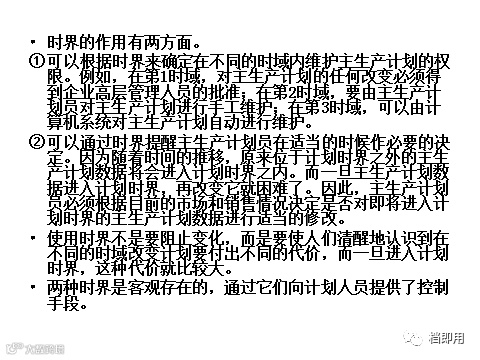 • 时界的作用有两方面。
①可以根据时界来确定在不同的时域内维护主生产计划的权
限。例如，在第1时域，对主生产计划的任何改变必须得
到企业高层管理人员的批准；在第2时域，要由主生产计
划员对主生产计划进行手工维护；在第3时域，可以由计
算机系统对主生产计划自动进行维护。
②可以通过时界提醒主生产计划员在适当的时候作必要的决
定。因为随着时间的推移，原来位于计划时界之外的主生
产计划数据将会进入计划时界之内。而一旦主生产计划数
据进入计划时界，再改变它就困难了。因此，主生产计划
员必须根据目前的市场和销售情况决定是否对即将进入计
划时界的主生产计划数据进行适当的修改。
• 使用时界不是要阻止变化，而是要使人们清醒地认识到在
不同的时域改变计划要付出不同的代价，而一旦进入计划
时界，这种代价就比较大。
• 两种时界是客观存在的，通过它们向计划人员提供了控制
手段。
档即用